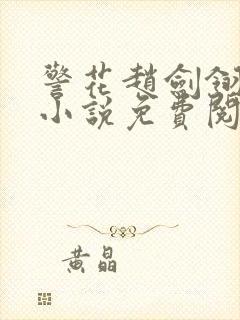 警花趙劍翎
小說免費閱
黃晶